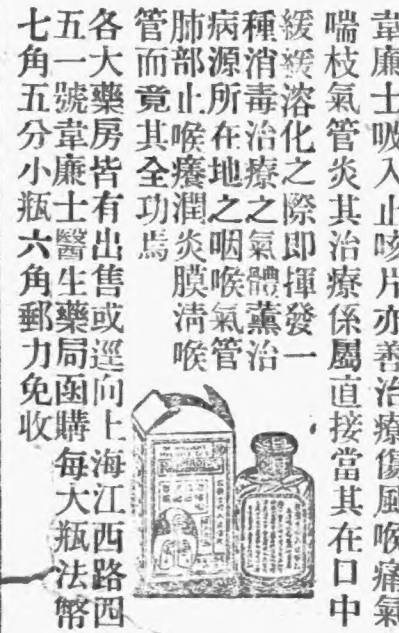 韋廉士吸入止咳片亦善治療傷風喉痛氣
喘枝氣管炎其治療係屬直接當其在口中
緩緩溶化之際即揮發一
種消毒治療之氣體薰治
病源所在地之咽喉氣管
肺部止喉癢潤炎膜清喉
管而竟其全功焉
各大藥房皆有出售或逕向上海江西路四
五一號韋廉士醫生藥局函購每大瓶法幣
七角五分小瓶六角郵力免收